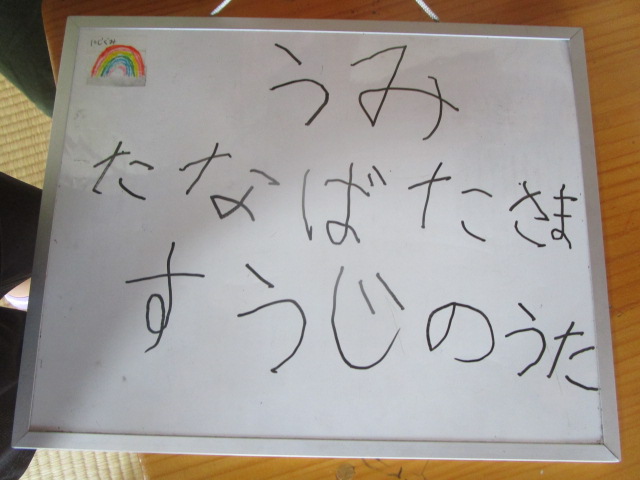 うみ
たなばたさま
すうじのうた